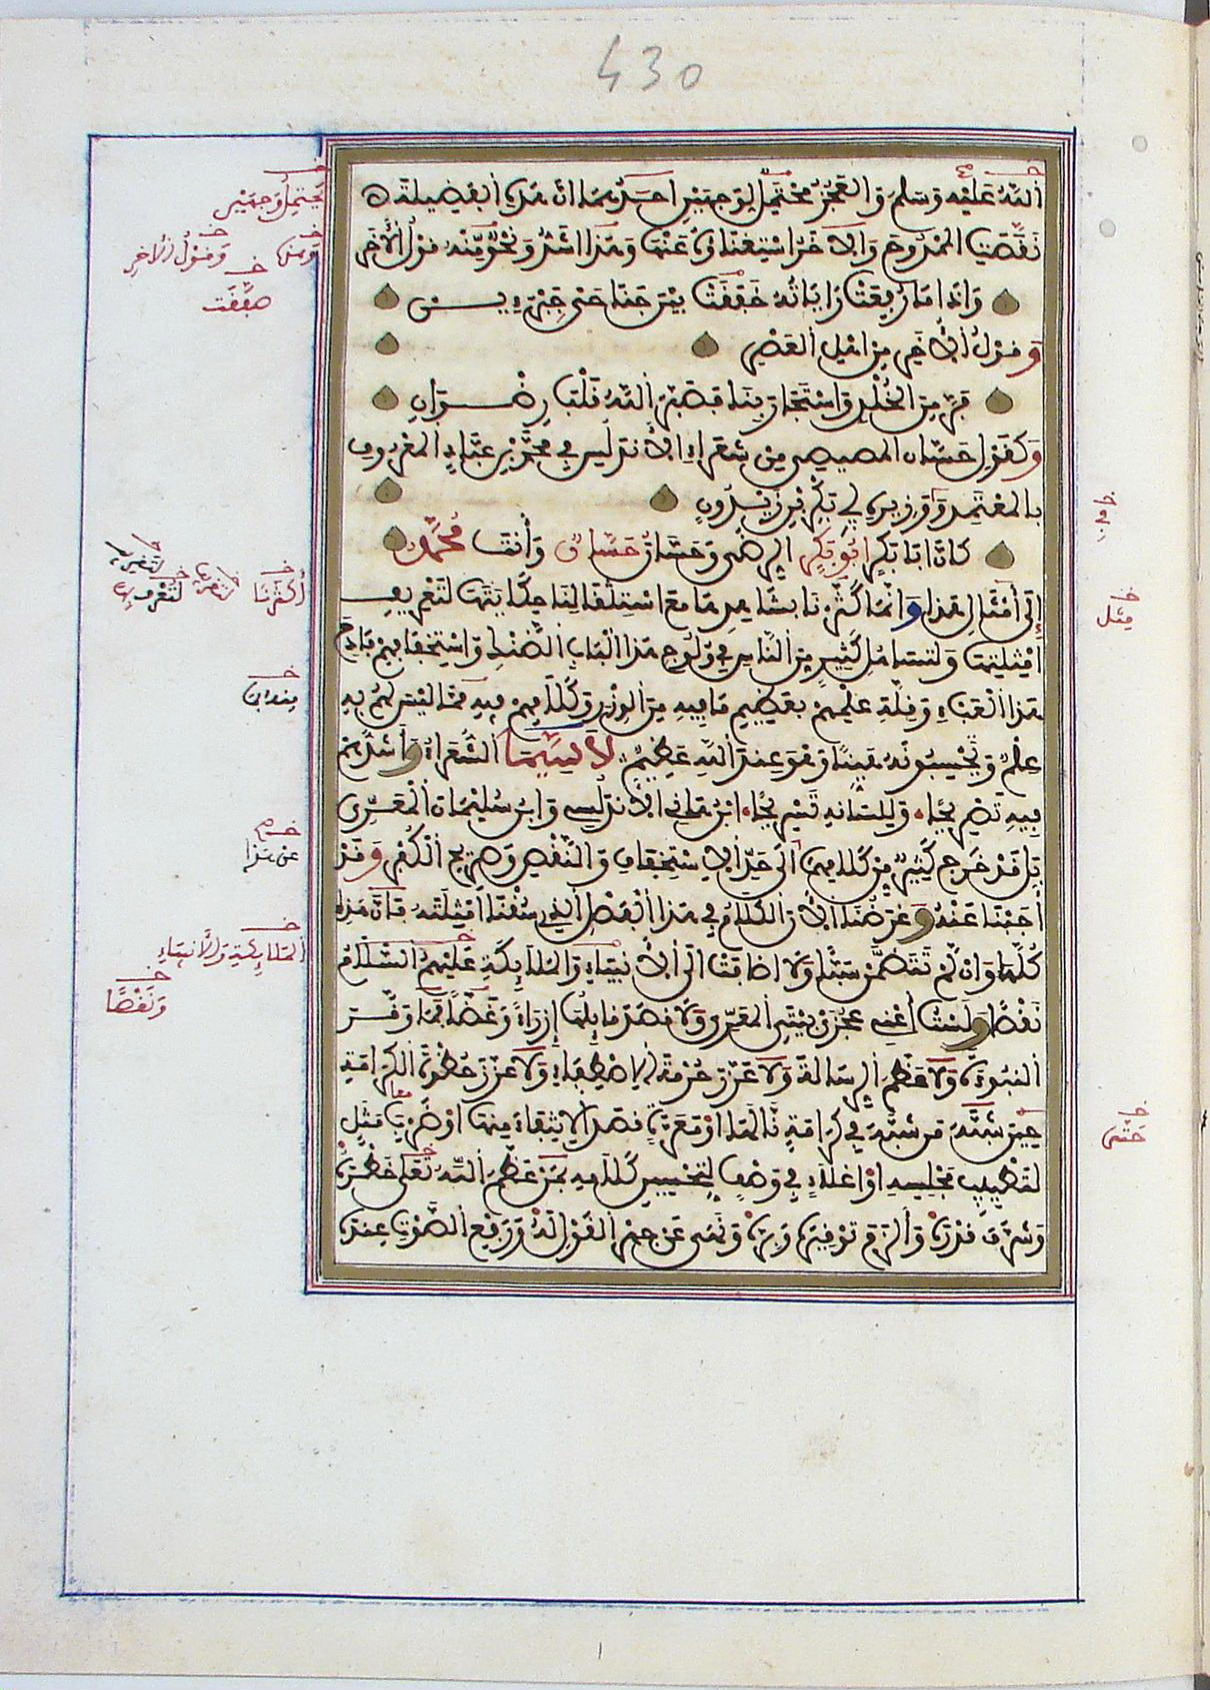 430
اللَّهُ عَلَيْهِ وَسَلَّمَ وَالْعَجُزُ مُحْتَمِلٌ لِوَجْهَيْنِ أَحَدُهُمَا أَنَّ هَذِهِ الْفَضِيلَةَ
نَقَّصَتِ الْمَمْدُوحَ وَالْآخَرُ اسْتِغْنَاؤُهُ عَنْهَا وَهَذَا أَشَدُّ وَنَحْوٌ مِّنْهُ قَوْلُ الْآخَرِ
وَإِذَا مَا رُفِعَتْ رَايَاتُهُ خَفَقَتْ بَيْنَ جَنَاحَيْ جِبْرِيـــن
وَقَوْلُ الْآخَرِ مِنْ أَهْلِ الْعَصْرِ
فَرَّ مِنَ الْخُلْدِ وَاسْتَجَارَ بِنَا فَصَبَّرَ اللَّهُ قَلْبَ رِضْـــوَانِ
وَكَقَوْلِ حَسَّان المصيصي مِنْ شُعَرَاءِ الْأَنْدَلُسِ فِي مُحَمَّدِ بْنِ عَبَّادٍ الْمَعْرُوفِ
بِالْمُعْتَمِدِ وَوَزِيرِهِ أَبِي بَكْرِ بْنِ زَيْدُونٍ
كَأَنَّ أَبَا بَكْرٍ أَبُو بَكْرٍ الرِّضَى وَحَسَّانَ حَسَّانٌ وَأَنْتَ مُحَمَّدُ
إِلَى أَمْثَالِ هَذَا وَإِنَّمَا كَثَّرْنَا بِشَاهِدِهَا مَعَ اسْتِثْقَالِنَا حِكَايَتَهَا لِتَعْرِيفِ
أَمْثِلَتِهَا وَلِتَسَاهُلِ كَثِيرٍ مِنَ النَّاسِ فِي وُلُوجِ هَذَا الْبَابِ الضَّنْكِ وَاسْتِخْفَافِهِمْ فَادِحَ
هَذَا الْعِبْءِ وَقِلَّةِ عِلْمِهِمْ بِعَظِيمِ مَا فِيهِ مِنَ الْوِزْرِ وَكَلَامِهِمْ فِيهِ مِمَّا لَيْسَ لَهُمْ بِهِ
عِلْمٌ وَيَحْسِبُونَهُ هَيِّنًا وَهُوَ عِنْدَ اللَّهِ عَظِيمٌ لَا سِيَّمَا الشُّعَرَاءُ وَأَشَدُّهُمْ
فِيهِ تَصْرِيحًا وَلِلِسَانِهِ تَسْرِيحًا ابْنُ هَانِئٍ الْأَنْدَلُسِي وَابْنُ سُلَيْمَانَ الْمَعَرِّي
بَلْ قَدْ خَرَجَ كَثِيرٌ مِنْ كَلَامِهِمَا إِلَى حَدِّ الْاسْتِخْفَافِ وَالنَّقْصِ وَصَرِيحِ الْكُفْرِ وَقَدْ
أَجَبْنَا عَنْهُ وَغَرَضُنَا الْآنَ الْكَلَامُ فِي هَذَا الْفَصْلِ الَّذِي سُقْنَا أَمْثِلَتَهُ فَإِنَّ هَذِهِ
كُلَّهَا وَإِنْ لَّمْ تَتَضَمَّنْ سَبًّا وَلَا أَضَافَتْ إِلَى الْأَنْبِيَاءِ وَالْمَلَائِكَةِ عَلَيْهِمُ السَّلَامُ
نَقْصًا وَلَسْتُ أَعْنِي عَجُزَيْ بَيْتَيِ الْمَعَرِّي وَلَا قَصَدَ قَائِلُهَا إِزْرَاءً وَغَضًّا فَمَا وَقَّـــرَ
النُّبُوَّةَ وَلَا عَظَّمَ الرِّسَالَةَ وَلَا عَزَّزَ حُرْمَةَ الْاصْطِفَاءِ وَلَا عَزَّزَ حُظْوَةَ الْكَرَامَةِ
حِينَ شَبَّهَ مَنْ شَبَّهَ فِي كَرَامَةٍ نَالَهَا أَوْ مَعَرَّةٍ قَصَدَ الْانْتِفَاءَ مِنْهَا أَوْ ضَرْبِ مَثَلٍ
لِتَطْيِيبِ مَجْلِسِهِ أَوْ إِغْلَاءٍ فِي وَصْفٍ لِتَحْسِينِ كَلَامِهِ بِمَنْ عَظَّمَ اللَّهُ تَعَلَى خَطَرَهُ
وَشَرَّفَ قَدْرَهُ وَأَلْزَمَ تَوْقِيرَهُ وَبِرَّهُ وَنَهَى عَنْ جَهْرِ الْقَوْلِ لَهُ وَرَفْعِ الصَّوْتِ عِنْدَهُ
يَحْتَمِلُ وَجْهَيْنِ
وَمِنْهُ وَقَوْلُ الْآخَرِ
صَفَّقَت
أَكْثَرْنَا
عَنْ هَذَا
الْمَلَائِكَةِ وَالْأَنْبِيَاءِ
وَنَقْصًا
مِثْل
حَتَّى